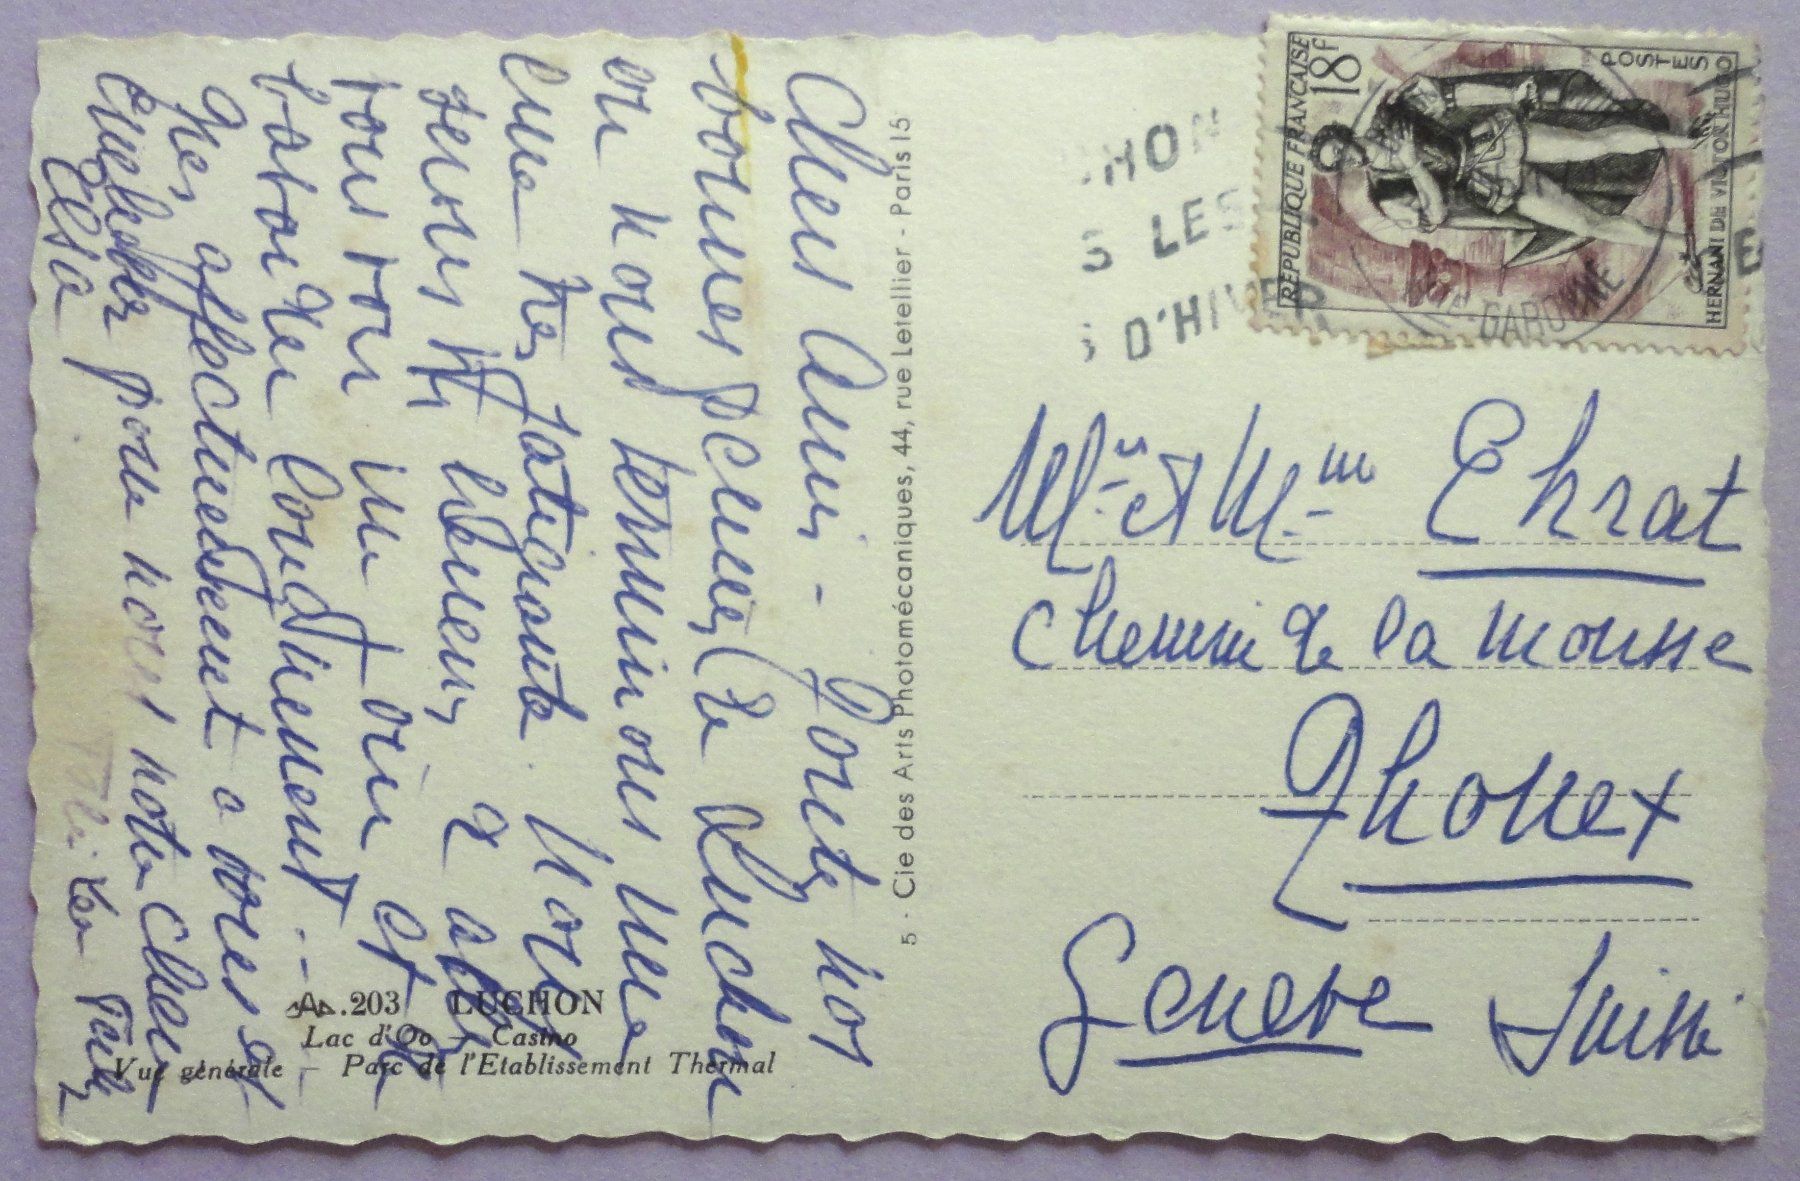 Chers Amis - Toutes nos
bonnes pensées de Luchon
où nous terminons une
cure très fatigante. Nous
serons très heureux d'aller
vous voir un soir et de
bavarder longuement . -
Très affectueusement à vous et
embrassez pour nous notre chère
Elsa
5 - Cie des Arts Photomécaniques, 44, rue Letellier - Paris 15e
.203 LUCHON
Lac d'Oo - Casino
Vue générale - Parc de l'Etablissement Thermal
RÉPUBLIQUE FRANÇAISE
18F
POSTES
HERNANI DE VICTOR HUGO
HON
S LES
S D'HIVER
HTE-GARONNE
Mr et Mme Ehrat
Chemin de la mousse
Thonex
Genève Suisse